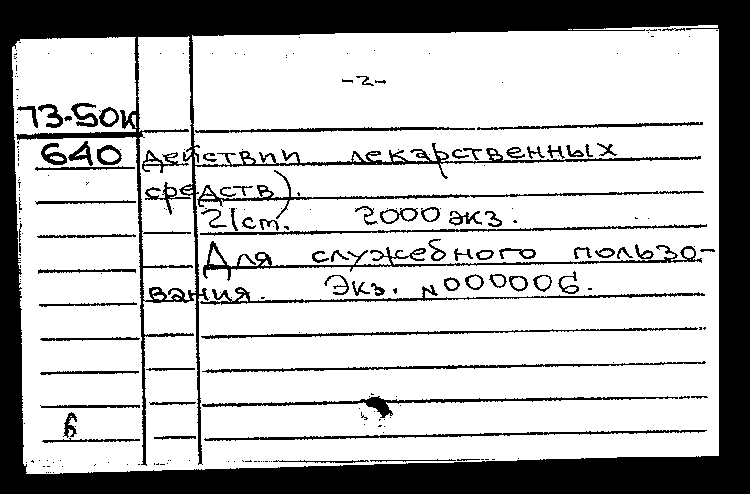 -2-
73-50к
640 действии лекарственных
средств).
21 ст. 2000 экз.
Для служебного пользо-
вания. Экз. N000006.
6